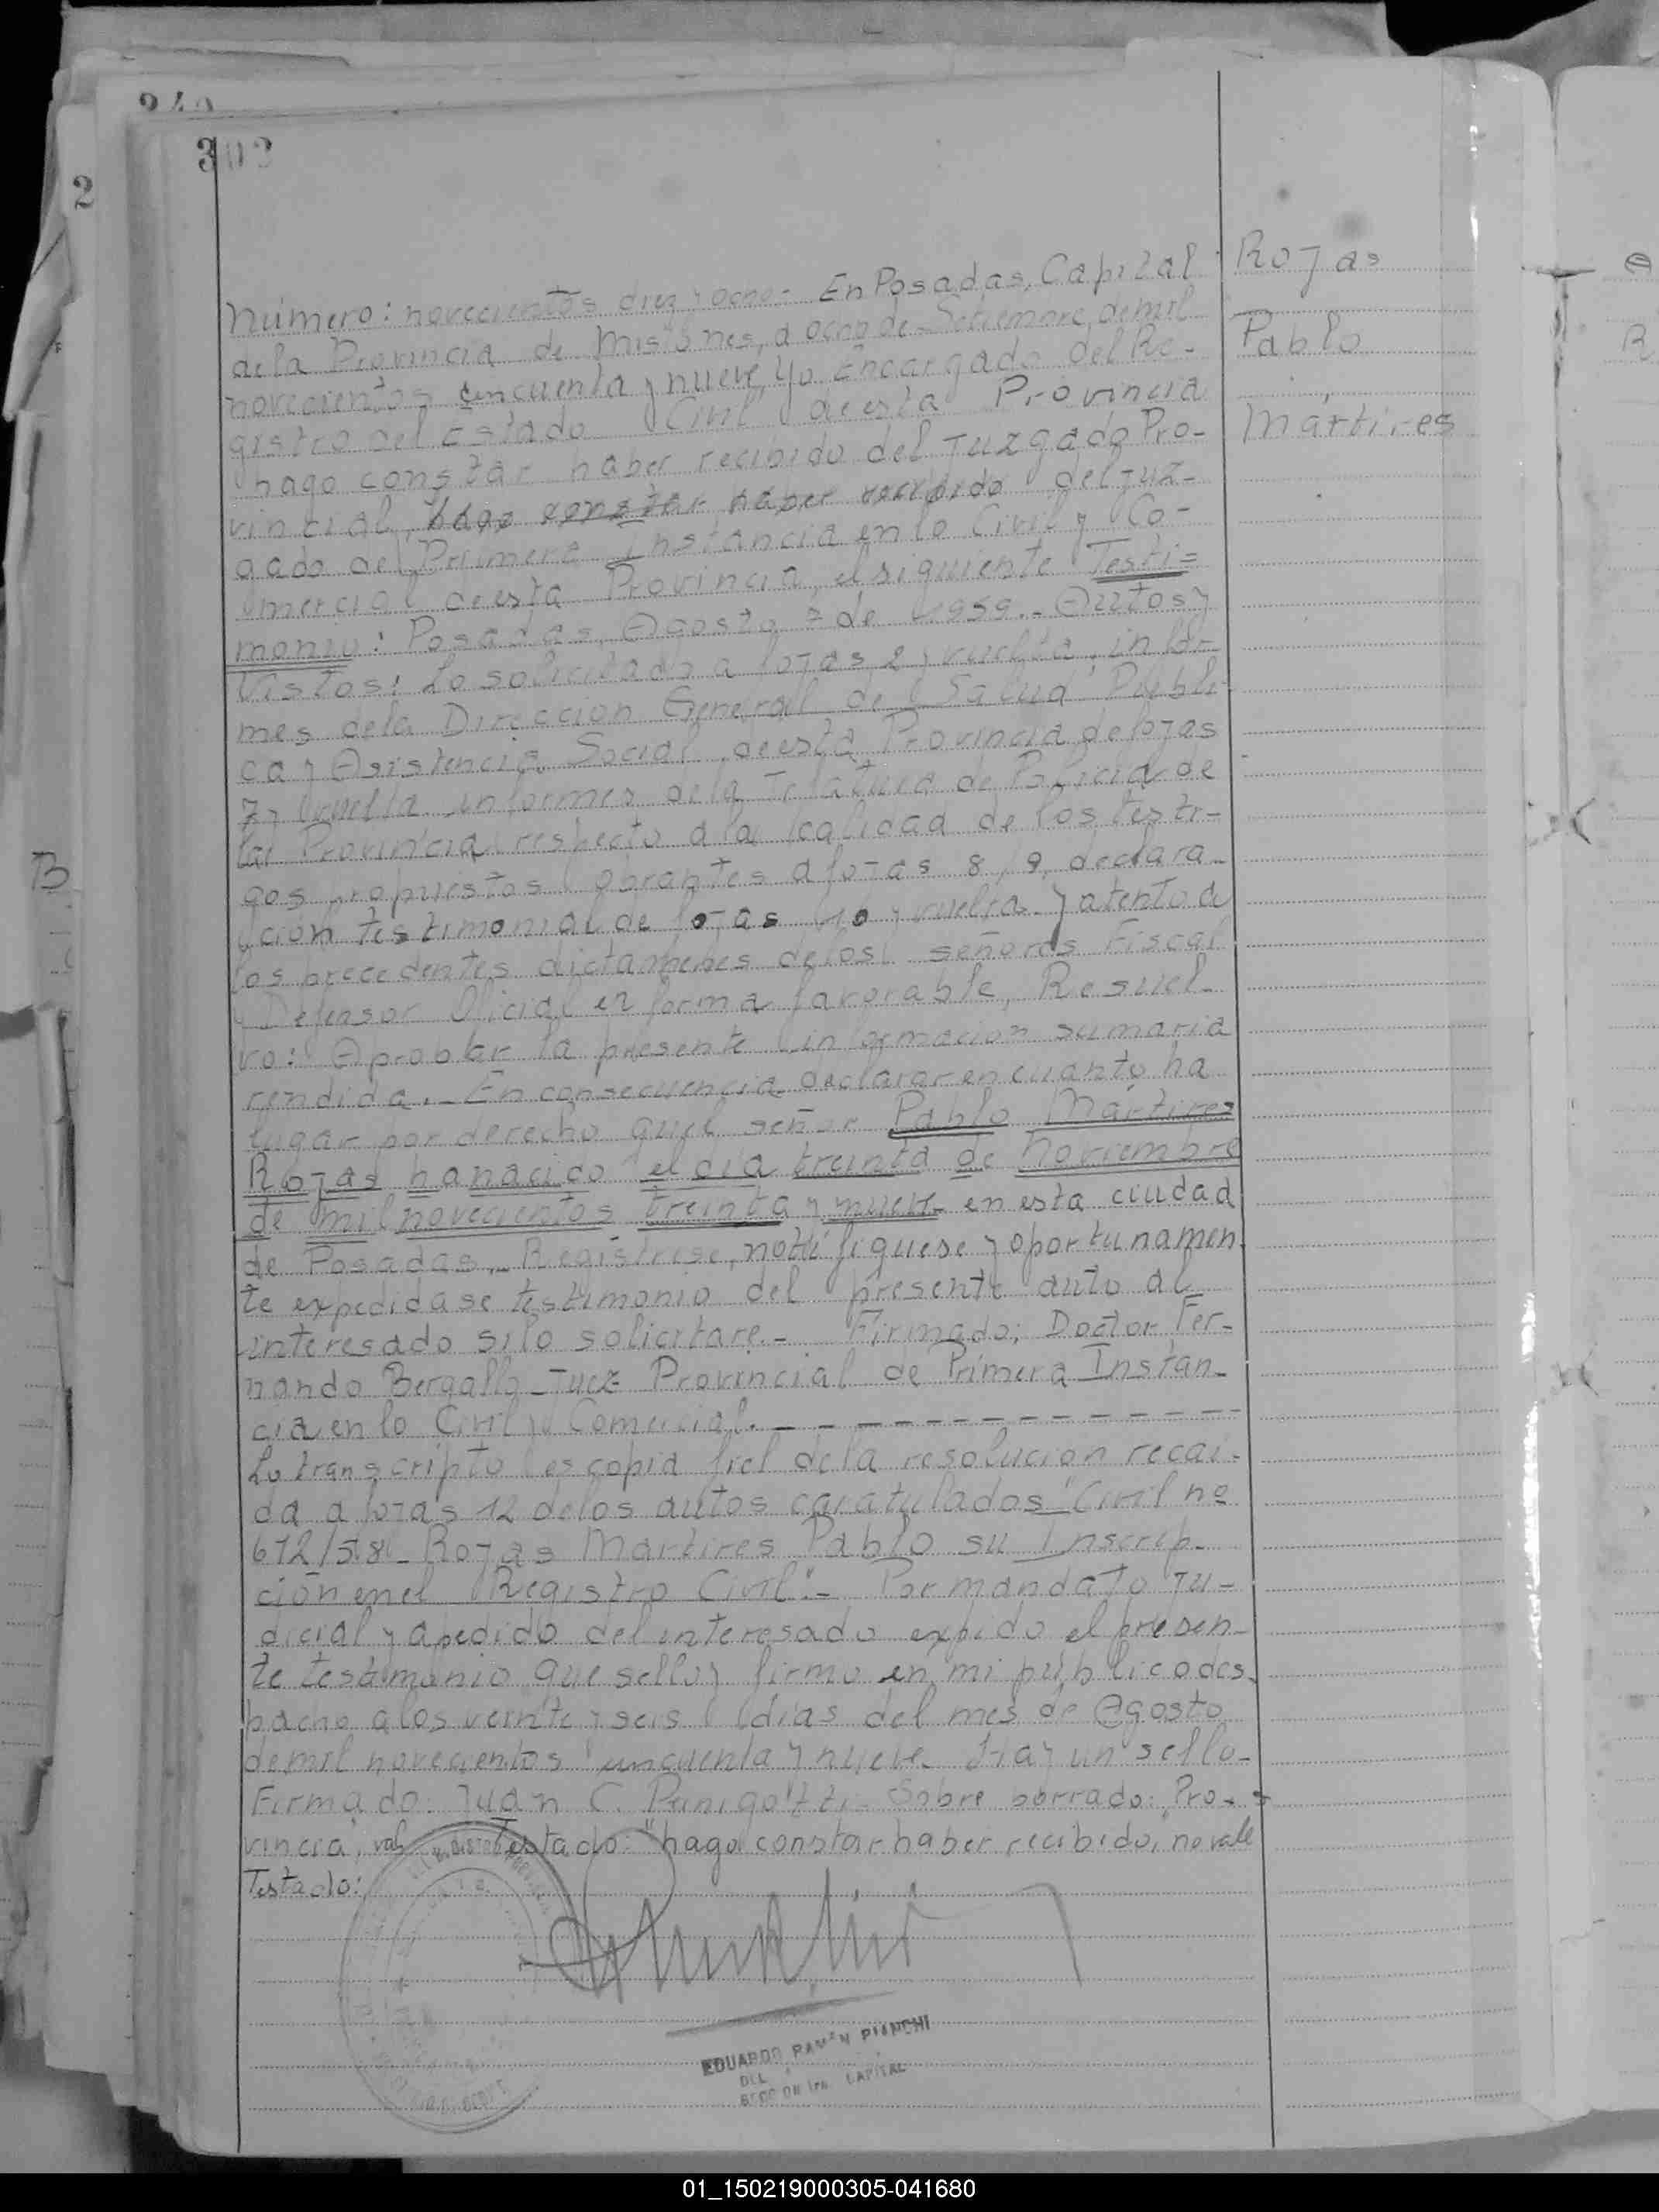 302
2
Rojas
Pablo
Mártires
Número: novecientos diez y ocho.- En Posadas, Capital
de la Provincia de Misiones, a ocho de Setiembre, de mil
novecientos cincuenta y nueve, yo Encargado del Re-
gistro del Estado Civil de esta Provincia
hago constar haber recibido del Juzgado Pro-
vincial, hago constar haber recibido del Juz-
gado de Primera Instancia en lo Civil y Co-
mercial de esta Provincia, el siguiente Testi=
monio: Posadas, Agosto 7 de 1959.- Autos y
Vistos: Lo solicitado a fojas 2 y vuelta, infor-
mes de la Dirección General de Salud Públi-
ca y Asistencia Social de esta Provincia de fojas
7 y vuelta informes de la Jefatura de Policía de
la Provincia respecto a la calidad de los testi-
gos propuestos obrantes a fojas 8 y 9, declara-
ción testimonial de fojas 10 y vuelta y atento a
los precedentes dictámenes de los señores Fiscal
y Defensor Oficial en forma favorable, Resuel-
vo: Aprobar la presente información sumaria
rendida.- En consecuencia declarar en cuanto ha
lugar por derecho que el señor Pablo Mártires
Rojas ha nacido el día treinta de Noviembre
de mil novecientos treinta y nueve en esta ciudad
de Posadas.- Regístrese, notifíquese y oportunamen
te expedidase testimonio del presente auto al
interesado si lo solicitare.- Firmado: Doctor Fer-
nando Bergallo - Juez Provincial de Primera Instan-
cia en lo Civil y Comercial.- - - - - - - - - - - -
Lo transcripto es copia fiel de la resolución recai-
da a fojas 12 de los autos caratulados "Civil no
672/58 - Rojas Martires Pablo su Inscrip-
ción en el Registro Civil".- Por mandato ju-
dicial y a pedido del interesado expido el presen-
te testimonio que sello y firmo en mi público des-
pacho a los veinte y seis días del mes de Agosto
de mil novecientos cincuenta y nueve. Hay un sello-
Firmado: Juan C. - Sobre borrado: "Pro-
vincia", vale Testado: "hago constar haber recibido," no vale
Testado:
EDUARDO RAMÓN PIANCHI
SECCION 1ra. CAPITAL
B
R
01_150219000305-041680